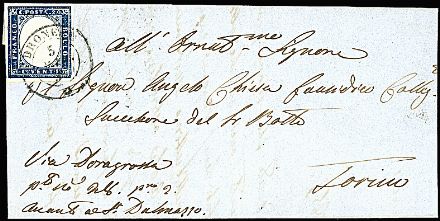 FRANCO BOLLO
DRONERO
5
All' Ornat.mo Signore
Il Signor Angelo Chiesa Causidico Colleg.
Successore del Sr Botto
Via Doragrossa
Torino
avanti a St. Dalmazzo